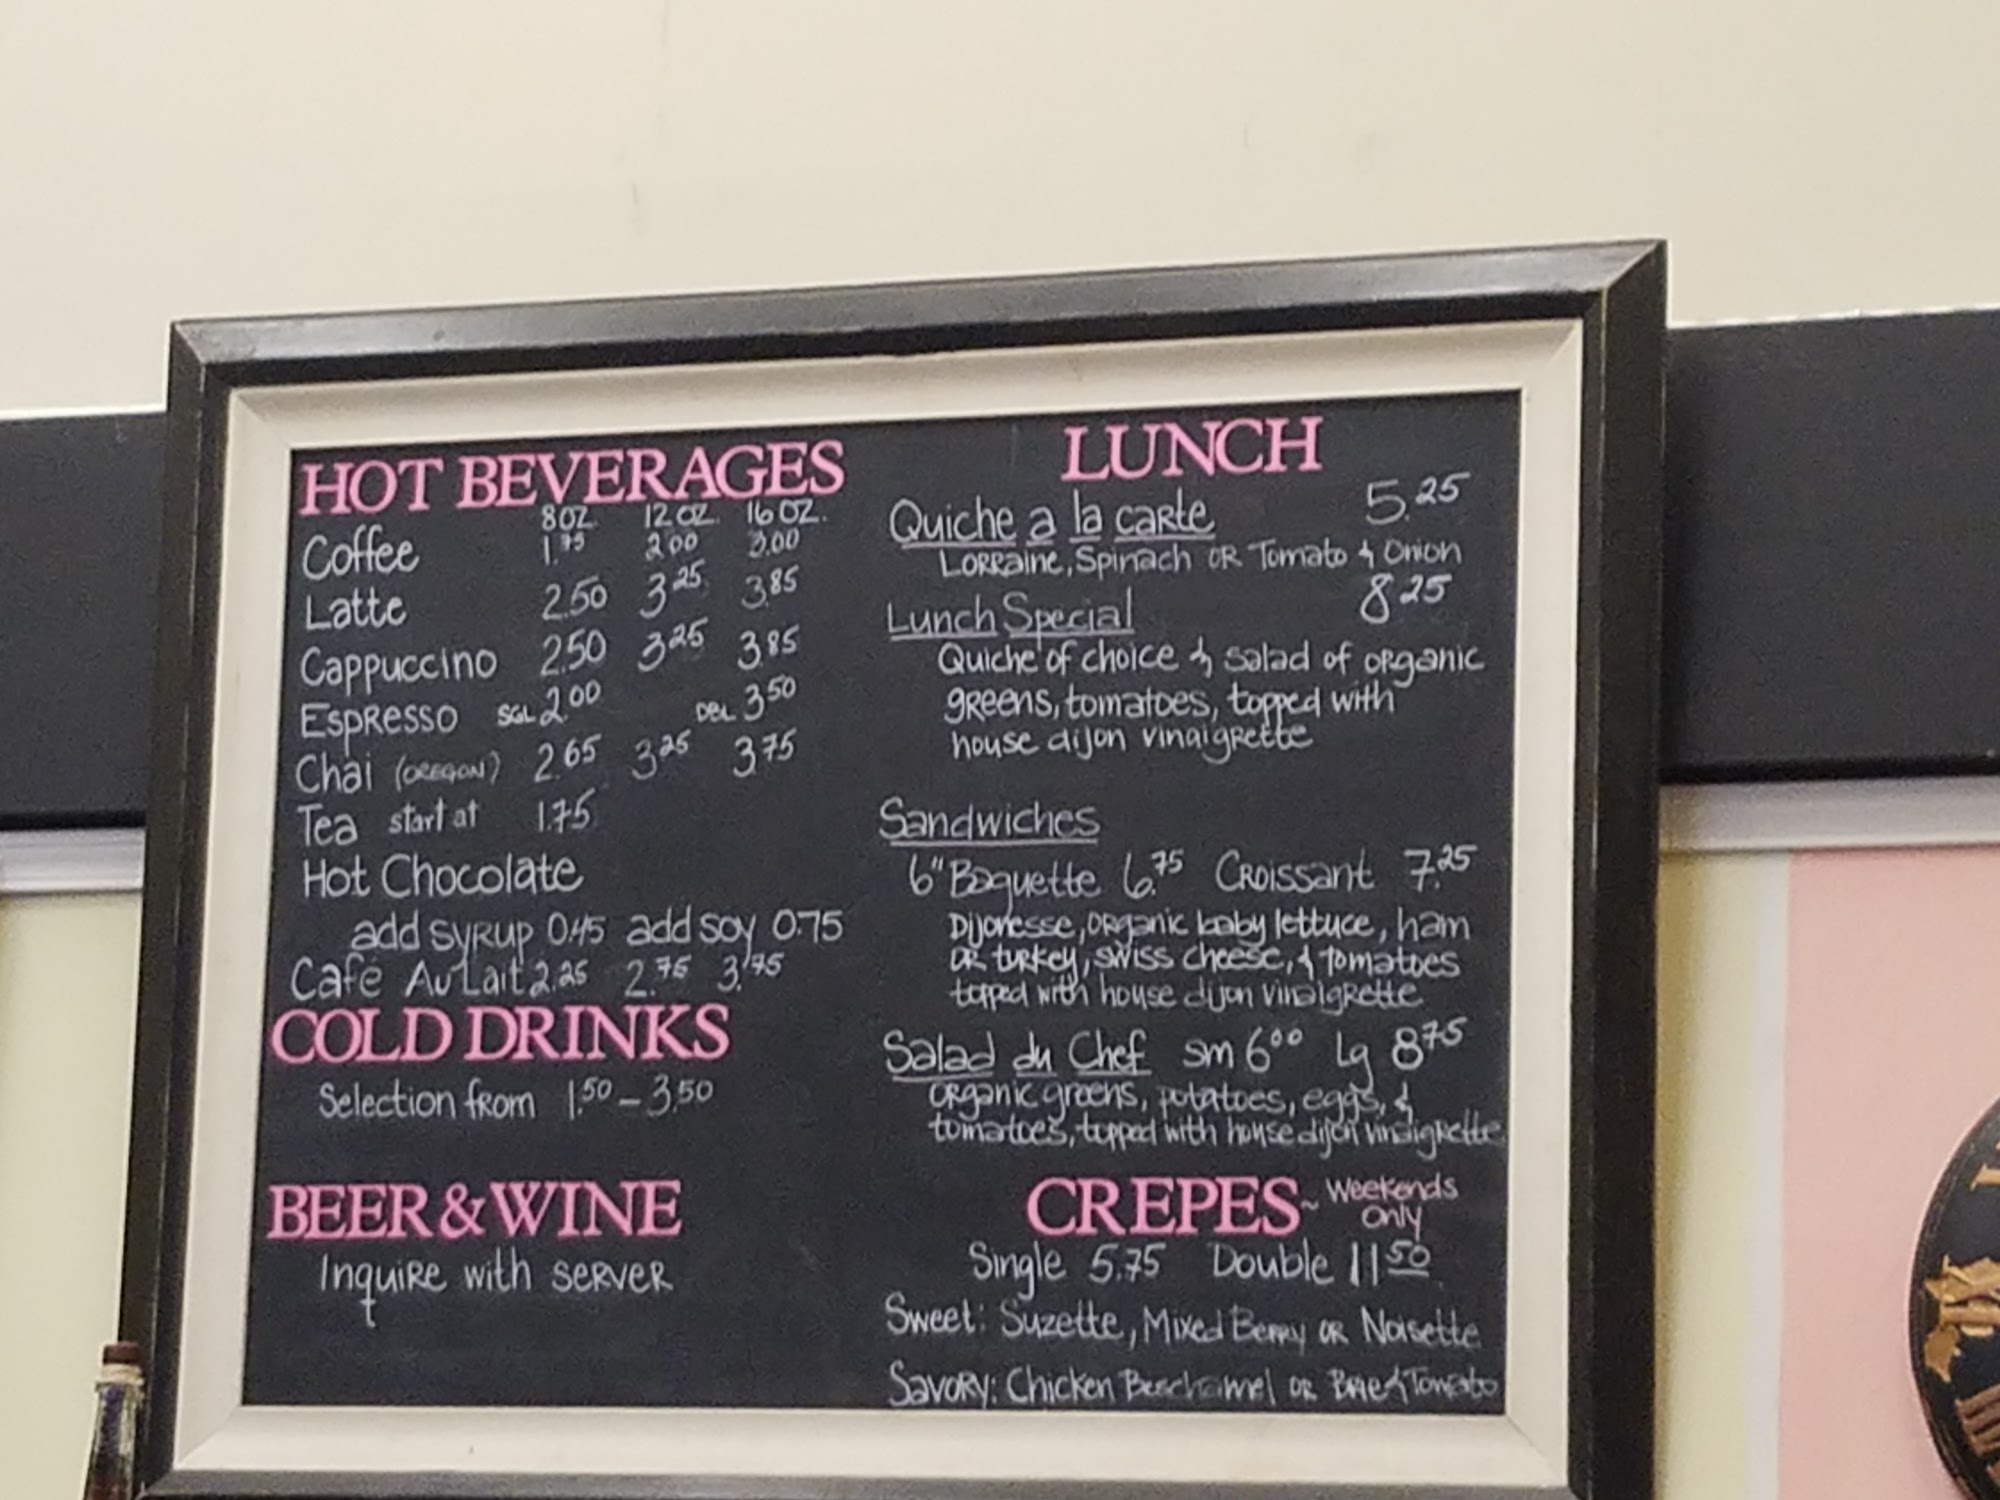 HOT BEVERAGES
8 OZ. 12 OZ. 16 OZ.
Coffee 1.75 2.00 3.00
Latte 2.50 3.25 3.85
Cappuccino 2.50 3.25 3.85
Espresso SGL 2.00 DBL 3.50
Chai (OREGON) 2.65 3.25 3.75
Tea start at 1.75
Hot Chocolate
add syrup 0.45 add soy 0.75
Café Au Lait 2.25 2.75 3.75
COLD DRINKS
Selection from 1.50 – 3.50
BEER & WINE
Inquire with server
LUNCH
Quiche a la carte 5.25
Lorraine, Spinach or Tomato & Onion
Lunch Special 8.25
Quiche of choice & salad of organic
greens, tomatoes, topped with
house dijon vinaigrette
Sandwiches
6" Baguette 6.75 Croissant 7.25
Dijonesse, organic baby lettuce, ham
or turkey, swiss cheese, & tomatoes
topped with house dijon vinaigrette
Salad du Chef sm 6.00 Lg 8.75
organic greens, potatoes, eggs, &
tomatoes, topped with house dijon vinaigrette
CREPES ~ Weekends
Only
Single 5.75 Double 11.50
Sweet: Suzette, Mixed Berry or Noisette
Savory: Chicken Beschamel or Brie & Tomato